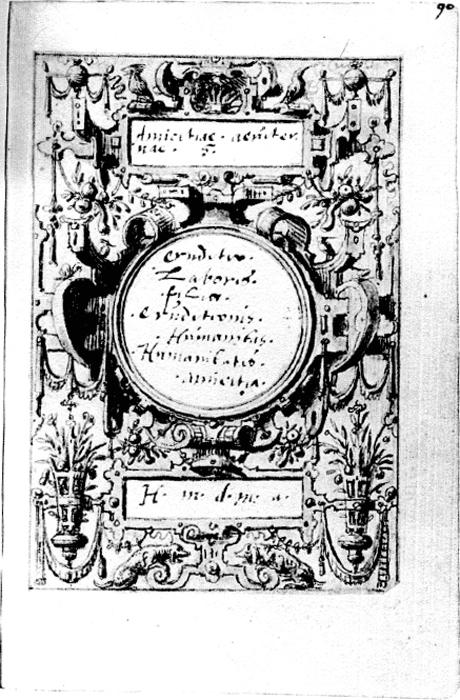 90
Amicitiae · aeuiter
nae · S.
Eruditio ·
Laboris ·
filia ·
· Eruditionis ·
Humanitas ·
· Humanitatis ·
· amicitia ·
H · m · d · m · a ·